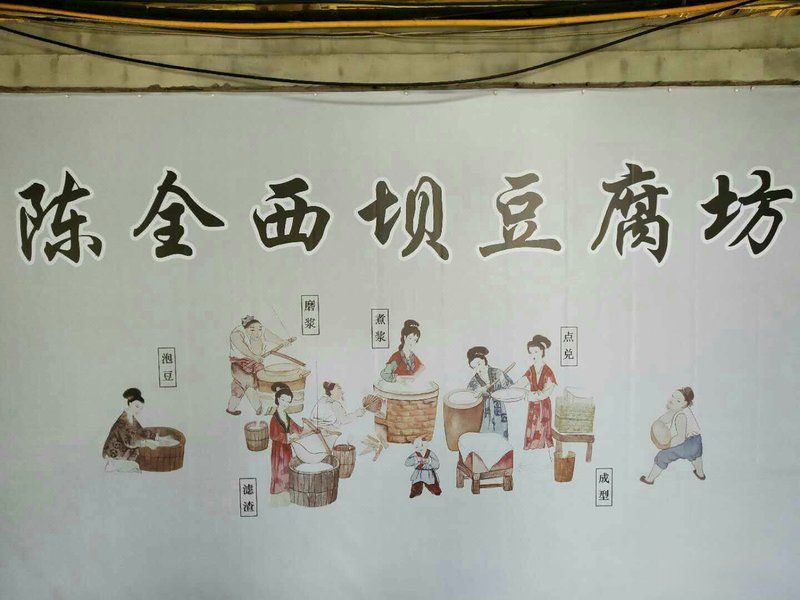 陈全西坝豆腐坊
泡豆
磨浆
煮浆
点兑
滤渣
成型